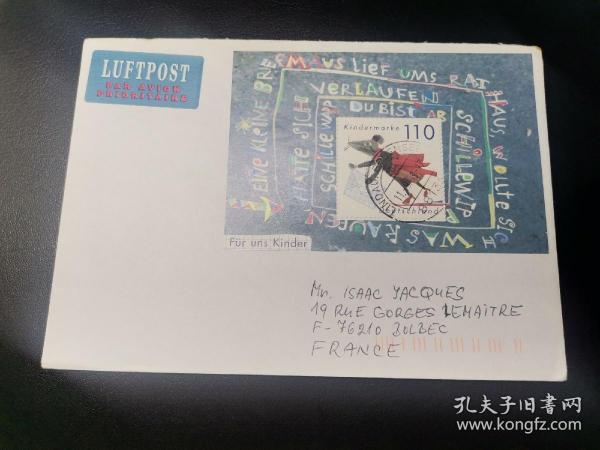 LUFTPOST
PAR AVION
PRIORITAIRE
EINE KLEINE BRIEFMAUS LIEF UMS RATHAUS, WOLLTE SICH
WAS KAUFEN
HATTE SICH VERLAUFEN
SCHILLEWIP
SCHILLEWAP
DU BIST AB
Kindermarke 110
Deutschland
LINDAU
Für uns Kinder
Mr. ISAAC JACQUES
19 RUE GORGES LEMAITRE
F-76210 BOLBEC
FRANCE
孔夫子旧书网
www.kongfz.com